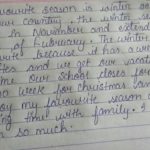 vourite season is winter se
our country. The winter se
in November and extend
of February. The winter
rite because it has a we
tes and we get our vacati
me our school closes for
wo week for christmas an
oy my favourite season
ing time with family. I
so much.